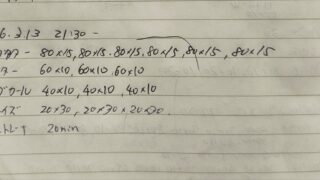 6. 3/3 21:30 -
80×15, 80×15. 80×15, 80×15, 80×15, 80×15
60×10, 60×10, 60×10
40×10, 40×10, 40×10
20×30, 20×30×20×30.
20min